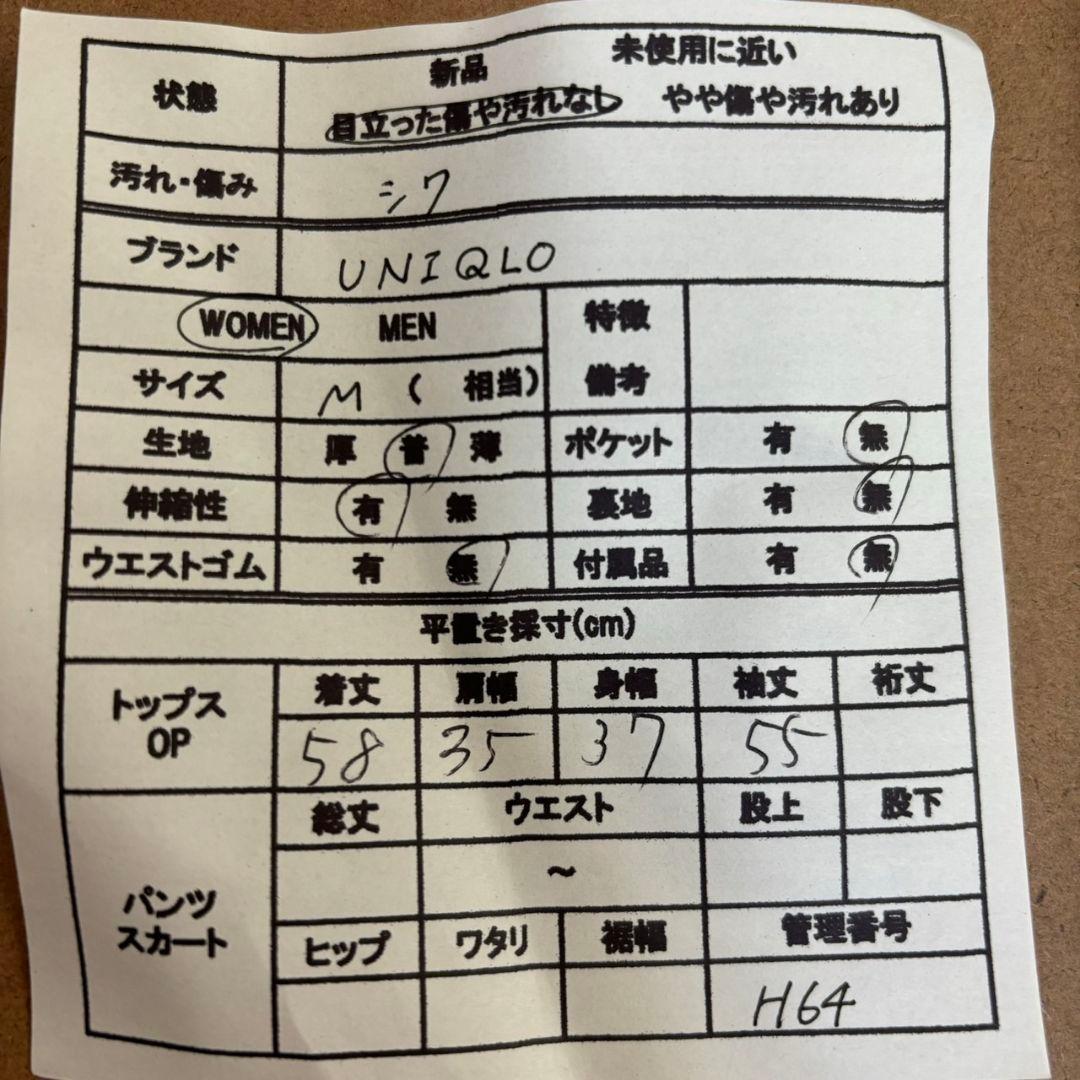 状態 新品 未使用に近い
目立った傷や汚れなし やや傷や汚れあり
汚れ・傷み シワ
ブランド UNIQLO
WOMEN MEN 特徴
サイズ M ( 相当) 備考
生地 厚 普 薄 ポケット 有 無
伸縮性 有 無 裏地 有 無
ウエストゴム 有 無 付属品 有 無
平置き採寸(cm)
トップス 着丈 肩幅 身幅 袖丈 裄丈
OP 58 35 37 55
総丈 ウエスト 股上 股下
～
パンツ
スカート ヒップ ワタリ 裾幅 管理番号
H64